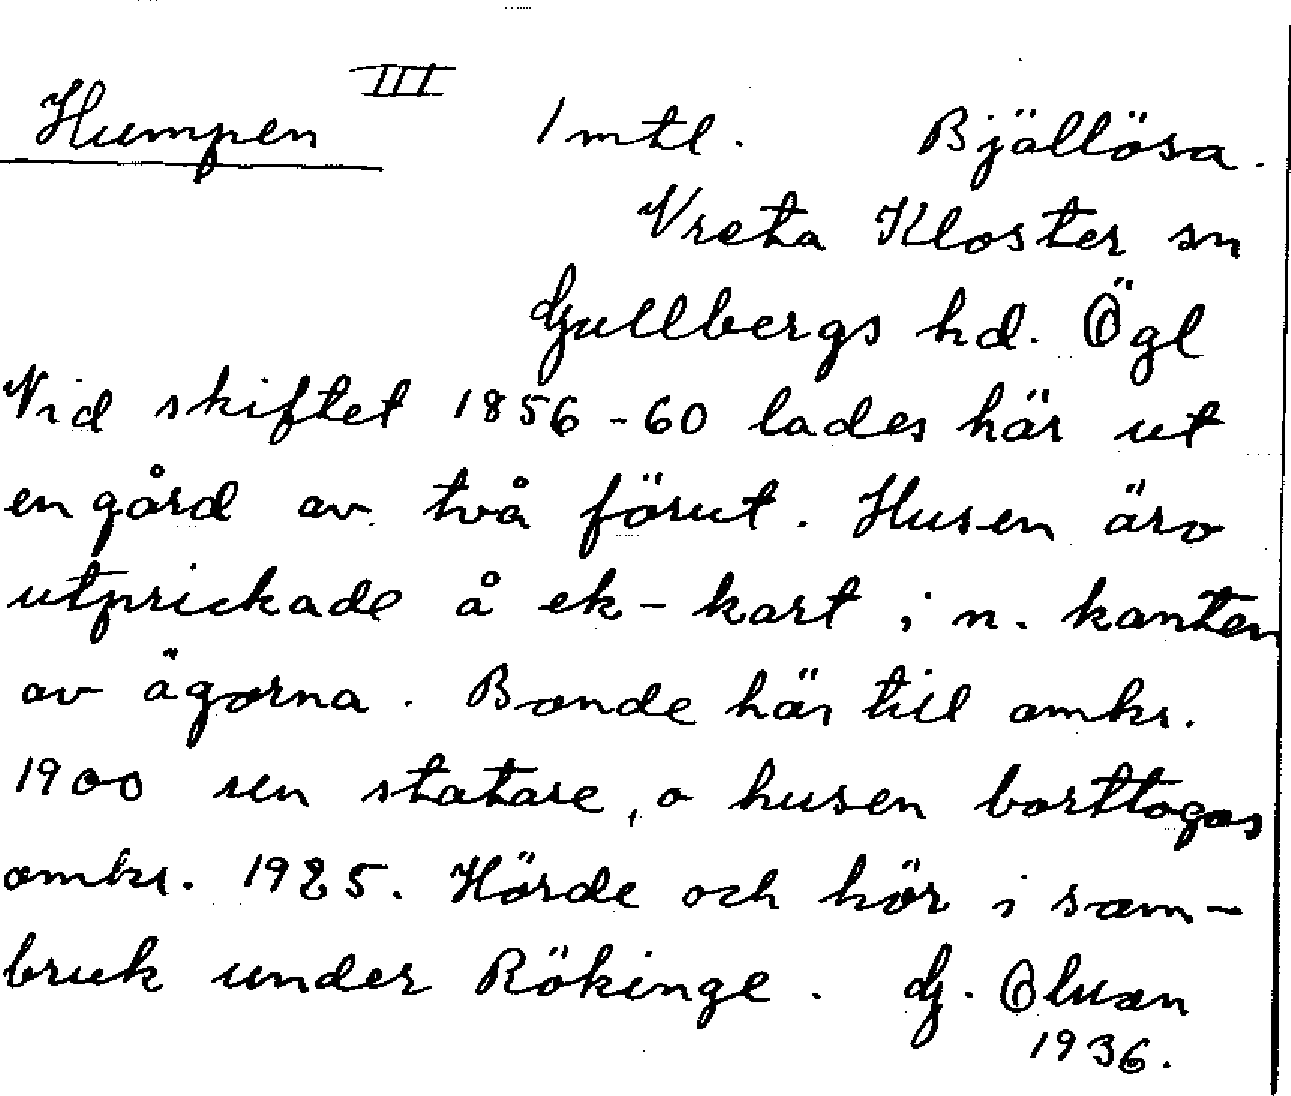 Humpen III 1 mtl. Bjällösa.
Vreta Kloster sn
Gullbergs hd. Ögl
Vid skiftet 1856-60 lades här ut
en gård av två förut. Husen äro
utprickade å ek-kart i n. kanten
av ägorna. Bonde här till omkr.
1900 sen statare, o husen borttogos
omkr. 1925. Hörde och hör i sam-
bruk under Rökinge. G. Olson
1936.